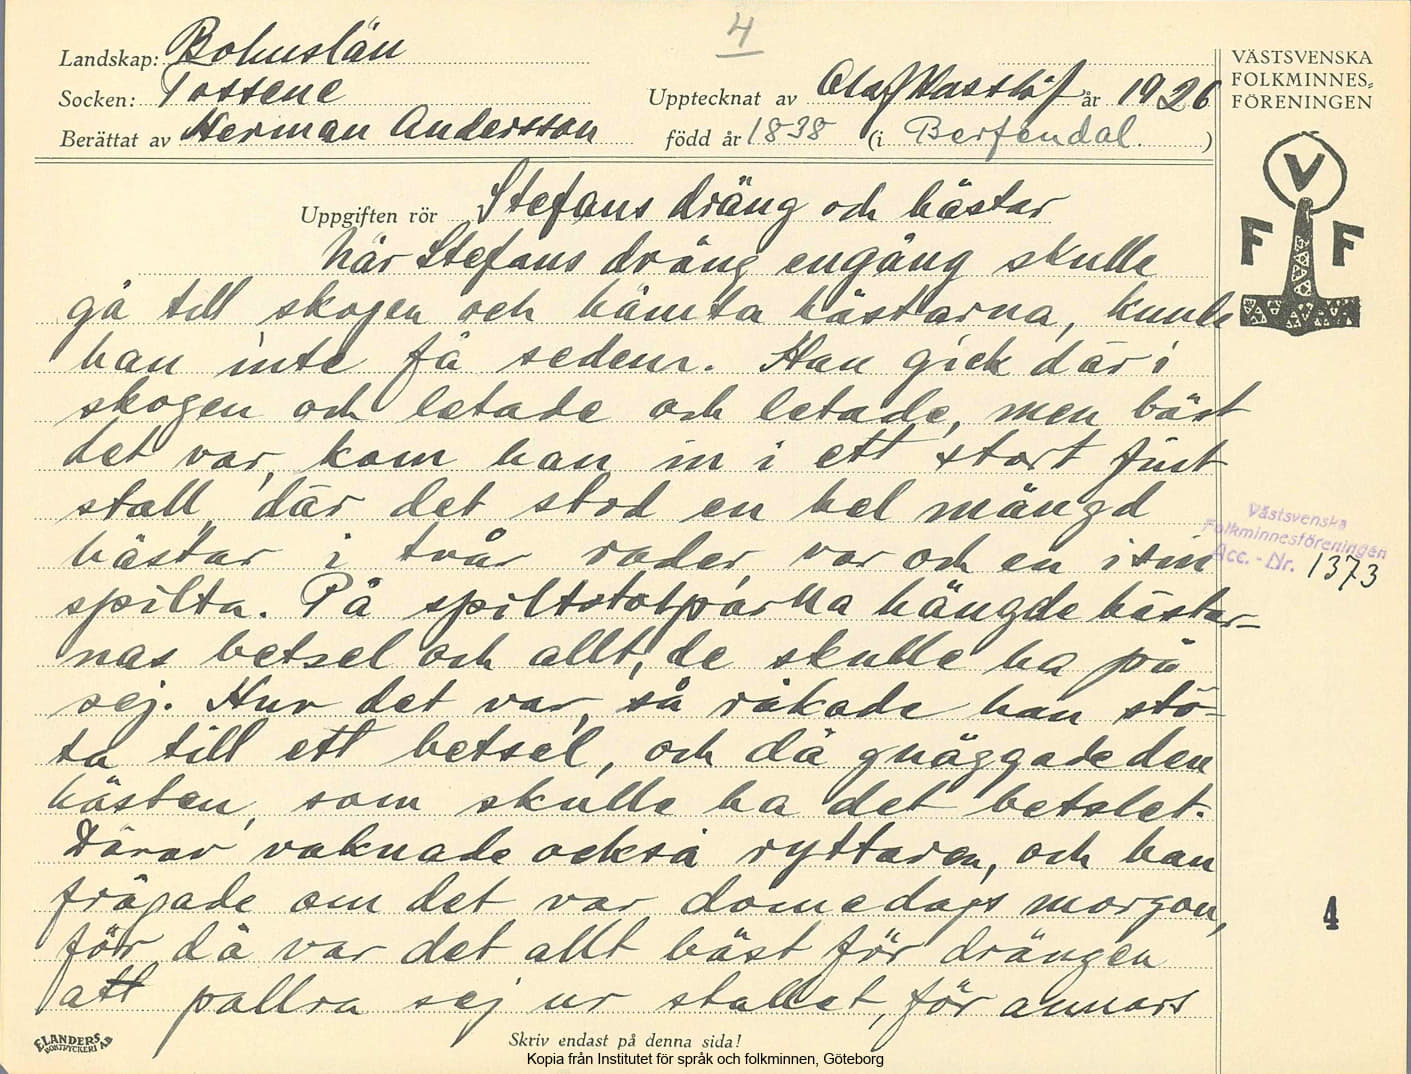 4
Landskap: Bohuslän
Socken: Tossene
Upptecknat av Olaf Hasslöf år 1926
Berättat av Herman Andersson född år 1838 (i Berfendal.)
VÄSTSVENSKA
FOLKMINNES-
FÖRENINGEN
V
F F
Uppgiften rör Stefans dräng och hästar
När Stefans dräng engång skulle
gå till skogen och hämta hästarna, kunde
han inte få se dem. Han gick där i
skogen och letade och letade, men bäst
det var, kom han in i ett stort fint
stall, där det stod en hel mängd
hästar i två rader, var och en i sin
spilta. På spiltstolparna hängde hästar-
nas betsel och allt, de skulle ha på
sej. Hur det var, så råkade han stö-
ta till ett betsel, och då gnäggade den
hästen, som skulle ha det betslet.
Därav vaknade också ryttaren, och han
frågade om det var domedags morgon,
för då var det allt bäst för drängen
att pallra sej ur stallet, för annars
Västsvenska
Folkminnesföreningen
Acc. - Nr. 1373
4
ELANDERS
BOKTRYCKERI AB
Skriv endast på denna sida!
Kopia från Institutet för språk och folkminnen, Göteborg